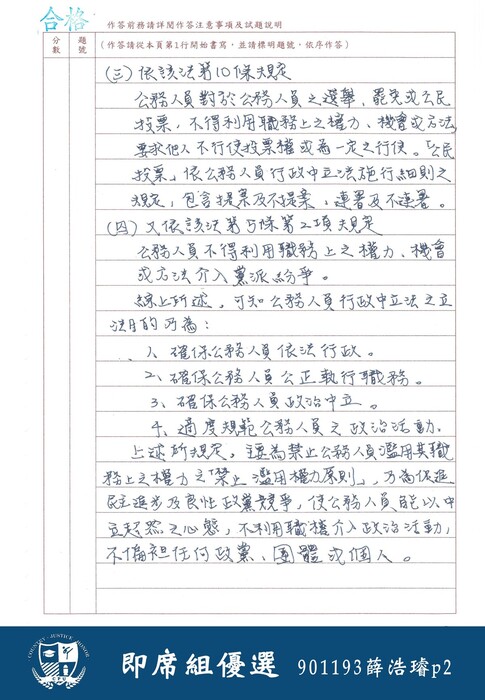 合格
作答前務請詳閱作答注意事項及試題說明
分數
題號
(作答請從本頁第1行開始書寫,並請標明題號,依序作答)
(三)依該法第10條規定
公務人員對於公務人員之選舉、罷免或公民
投票,不得利用職務上之權力、機會或方法,
要求他人不行使投票權或為一定之行使。「公民
投票」依公務人員行政中立法施行細則之
規定,包含提案及不提案,連署及不連署。
(四)又依該法第5條第2項規定
公務人員不得利用職務上之權力、機會
或方法介入黨派紛爭。
綜上所述,可知公務人員行政中立法之立
法目的乃為:
1、確保公務人員依法行政。
2、確保公務人員公正執行職務。
3、確保公務人員政治中立。
4、適度規範公務人員之政治活動.
上述所規定,主為禁止公務人員濫用其職
務上之權力之「禁止濫用權力原則」,乃為促進
民主進步及良性政黨競爭,使公務人員能以中
立超然之心態,不利用職權介入政治活動,
不偏袒任何政黨、團體或個人。
COUNTRY · JUSTICE · HONOR
即席組優選 901193薛浩璿p2